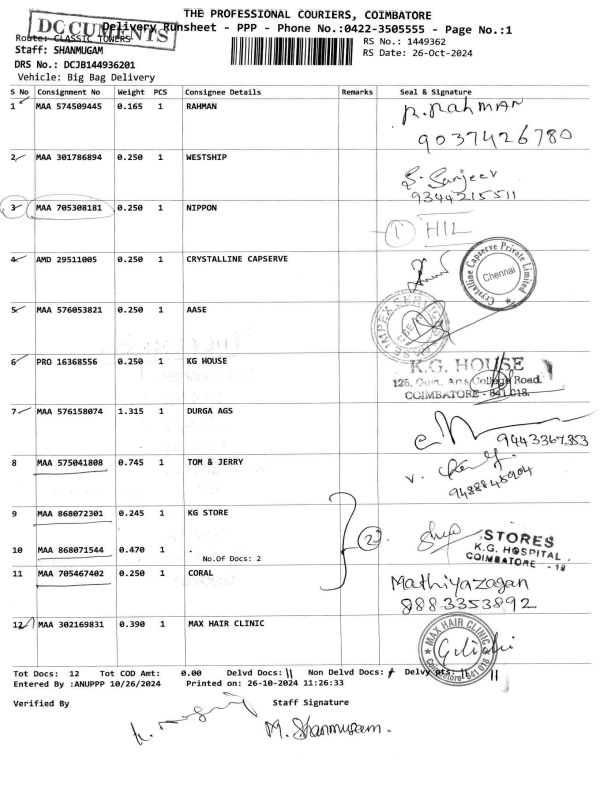 THE PROFESSIONAL COURIERS, COIMBATORE
DOCUMENTS
Delivery Runsheet - PPP - Phone No.:0422-3505555 - Page No.:1
Route: CLASSIC TOWERS
RS No.: 1449362
Staff: SHANMUGAM
RS Date: 26-Oct-2024
DRS No.: DCJB144936201
Vehicle: Big Bag Delivery
S No Consignment No Weight PCS Consignee Details Remarks Seal & Signature
1 MAA 574509445 0.165 1 RAHMAN R. RAHMAN
9037426780
2 MAA 301786894 0.250 1 WESTSHIP S. Sanjeev
9344215511
3 MAA 705308181 0.250 1 NIPPON
1 HIL
4 AMD 29511005 0.250 1 CRYSTALLINE CAPSERVE Crystalline Capserve Private Limited
Chennai
5 MAA 576053821 0.250 1 AASE
6 PRO 16368556 0.250 1 KG HOUSE K.G. HOUSE
125, Govt. Arts College Road.
COIMBATORE - 641 018.
7 MAA 576158074 1.315 1 DURGA AGS
9443367353
8 MAA 575041808 0.745 1 TOM & JERRY
9488845904
9 MAA 868072301 0.245 1 KG STORE
2 STORES
K.G. HOSPITAL,
COIMBATORE - 18
10 MAA 868071544 0.470 1 .
No.Of Docs: 2
11 MAA 705467402 0.250 1 CORAL Mathiyazagan
8883353892
12 MAA 302169831 0.390 1 MAX HAIR CLINIC MAX HAIR CLINIC
Coimbatore 641 018
Tot Docs: 12 Tot COD Amt: 0.00 Delvd Docs: 11 Non Delvd Docs: 1 Delvy pts: 11
Entered By :ANUPPP 10/26/2024 Printed on: 26-10-2024 11:26:33
Verified By Staff Signature
M. Shanmugam.